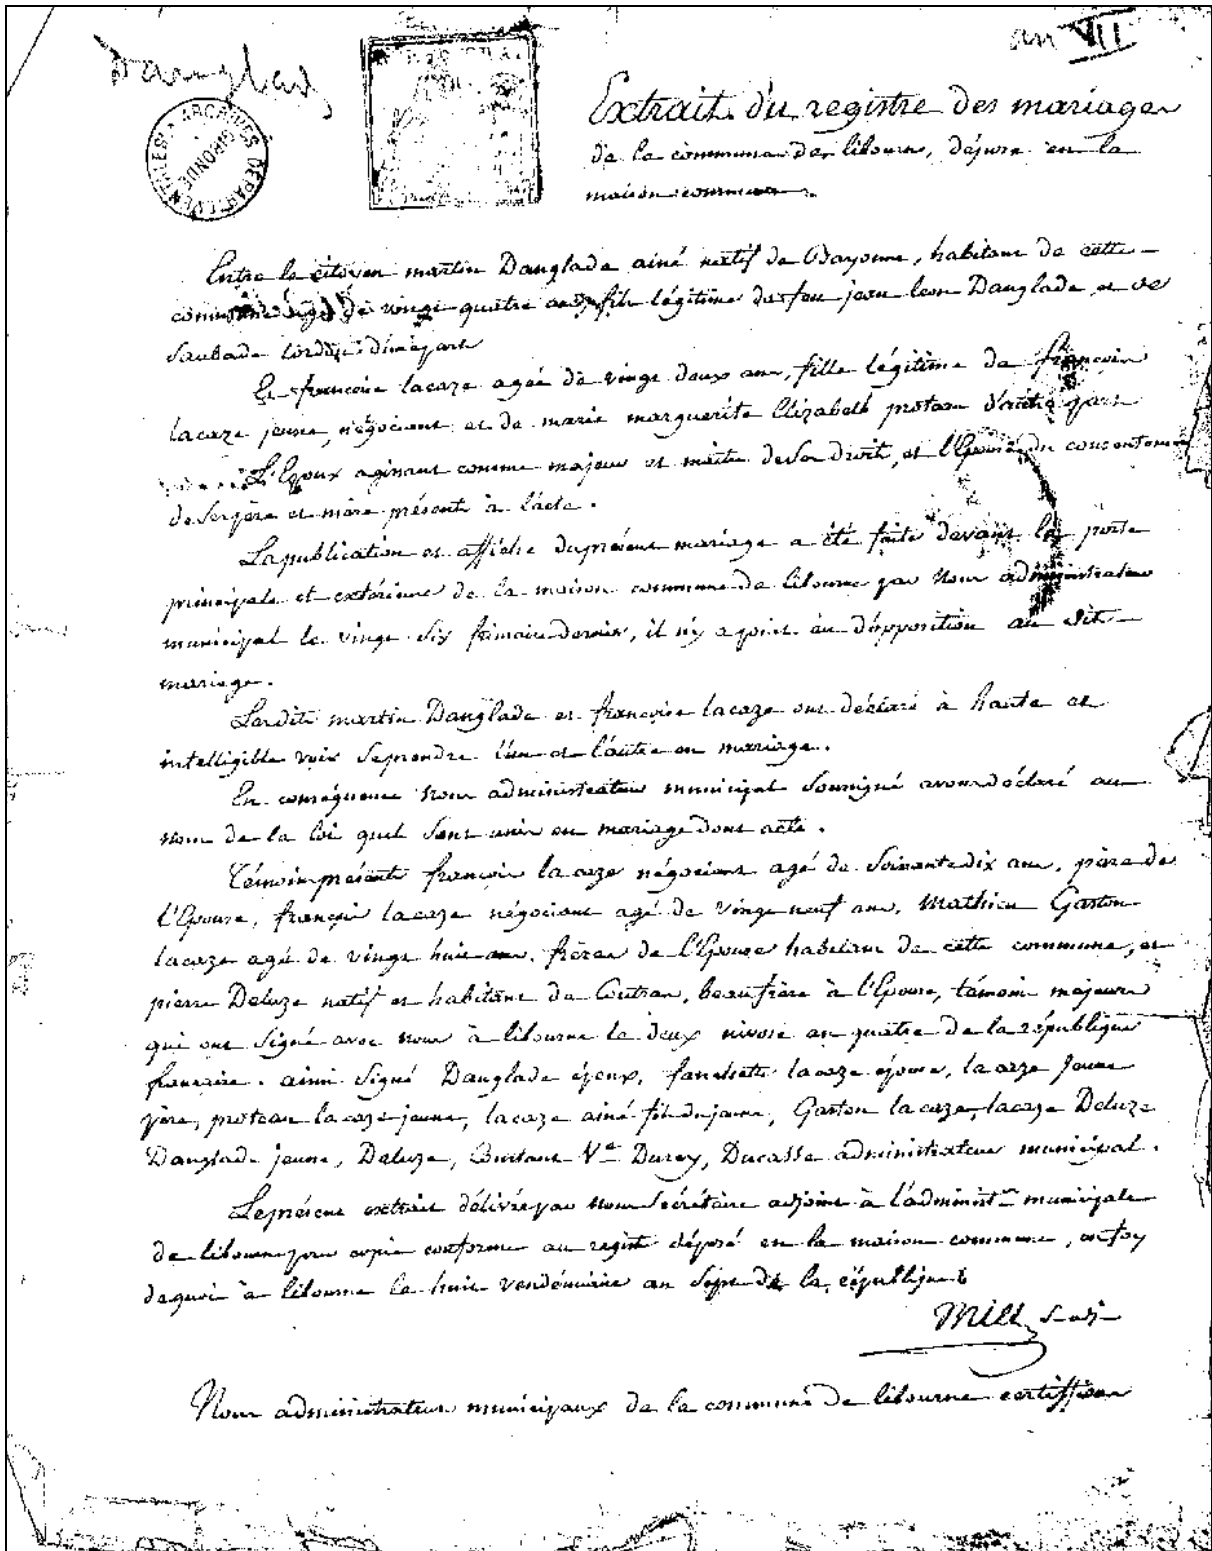 Danglade
an VII
ARCHIVES DEPARTEMENTALES
GIRONDE
Extrait du registre des mariages
de la commune de libourne, déposé en la
maison commune.
Entre le citoyen martin Danglade ainé natif de Bayonne, habitant de cette
commune agé de vingt quatre ans fils légitime de feu jean leon Danglade, et de
Saubade d'une part
Et françoise lacaze agée de vingt deux ans, fille légitime de françois
lacaze jeune, négociant et de marie marguerite Elizabeth proteau d'autre part
L'Epoux agissant comme majeur et maitre de ses droits, et l'Epouse du consentement
de ses père et mère présents à l'acte.
La publication et affiche du présent mariage a été faite devant la porte
principale et extérieure de la maison commune de libourne par nous administrateur
municipal le vingt six frimaire dernier, il n'y a point eu d'opposition au dit
mariage.
Lesdits martin Danglade et françoise lacaze ont déclaré à haute et
intelligible voix se prendre l'un et l'autre en mariage.
En conséquence nous administrateur municipal soussigné avons déclaré au
nom de la loi quils sont unis en mariage dont acte.
Témoins présents françois lacaze négociant agé de soixante dix ans, père de
l'Epouse, françois lacaze négociant agé de vingt neuf ans, Mathieu Gaston
lacaze agé de vingt huit ans, frères de l'Epouse habitans de cette commune, et
pierre Deluze natif et habitant de Coutras, beaufrère à l'Epouse, témoins majeurs
qui ont signé avec nous à libourne le deux nivose an quatre de la république
française. ainsi signé Danglade époux, fanchette lacaze épouse, lacaze jeune
père, proteau lacaze jeune, lacaze ainé fils du jeune, Gaston lacaze, lacaze Deluze
Danglade jeune, Deluze, Vᵉ Durey, Ducasse administrateur municipal.
Le présent extrait délivré par nous Secrétaire adjoint à l'administ.ᵒⁿ municipale
de libourne pour copie conforme au registre déposé en la maison commune, en foy
de quoi à libourne le huit vendémiaire an sept de la république
Mill S. adj.
Nous administrateurs municipaux de la commune de libourne certiffions